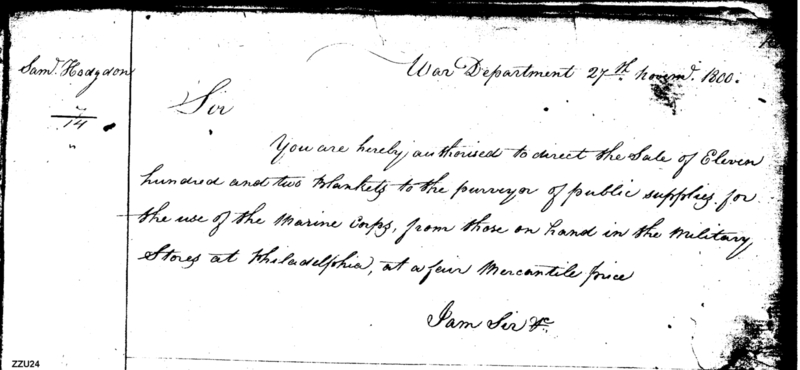 Saml. Hodgdon
7
14
"
War Department 27th. novemr. 1800.
Sir
You are hereby authorised to direct the Sale of Eleven
hundred and two Blankets to the purveyor of public supplies for
the use of the Marine Corps, from those on hand in the Military
Stores at Philadelphia, at a fair Mercantile price
I am Sir &c.
ZZU24